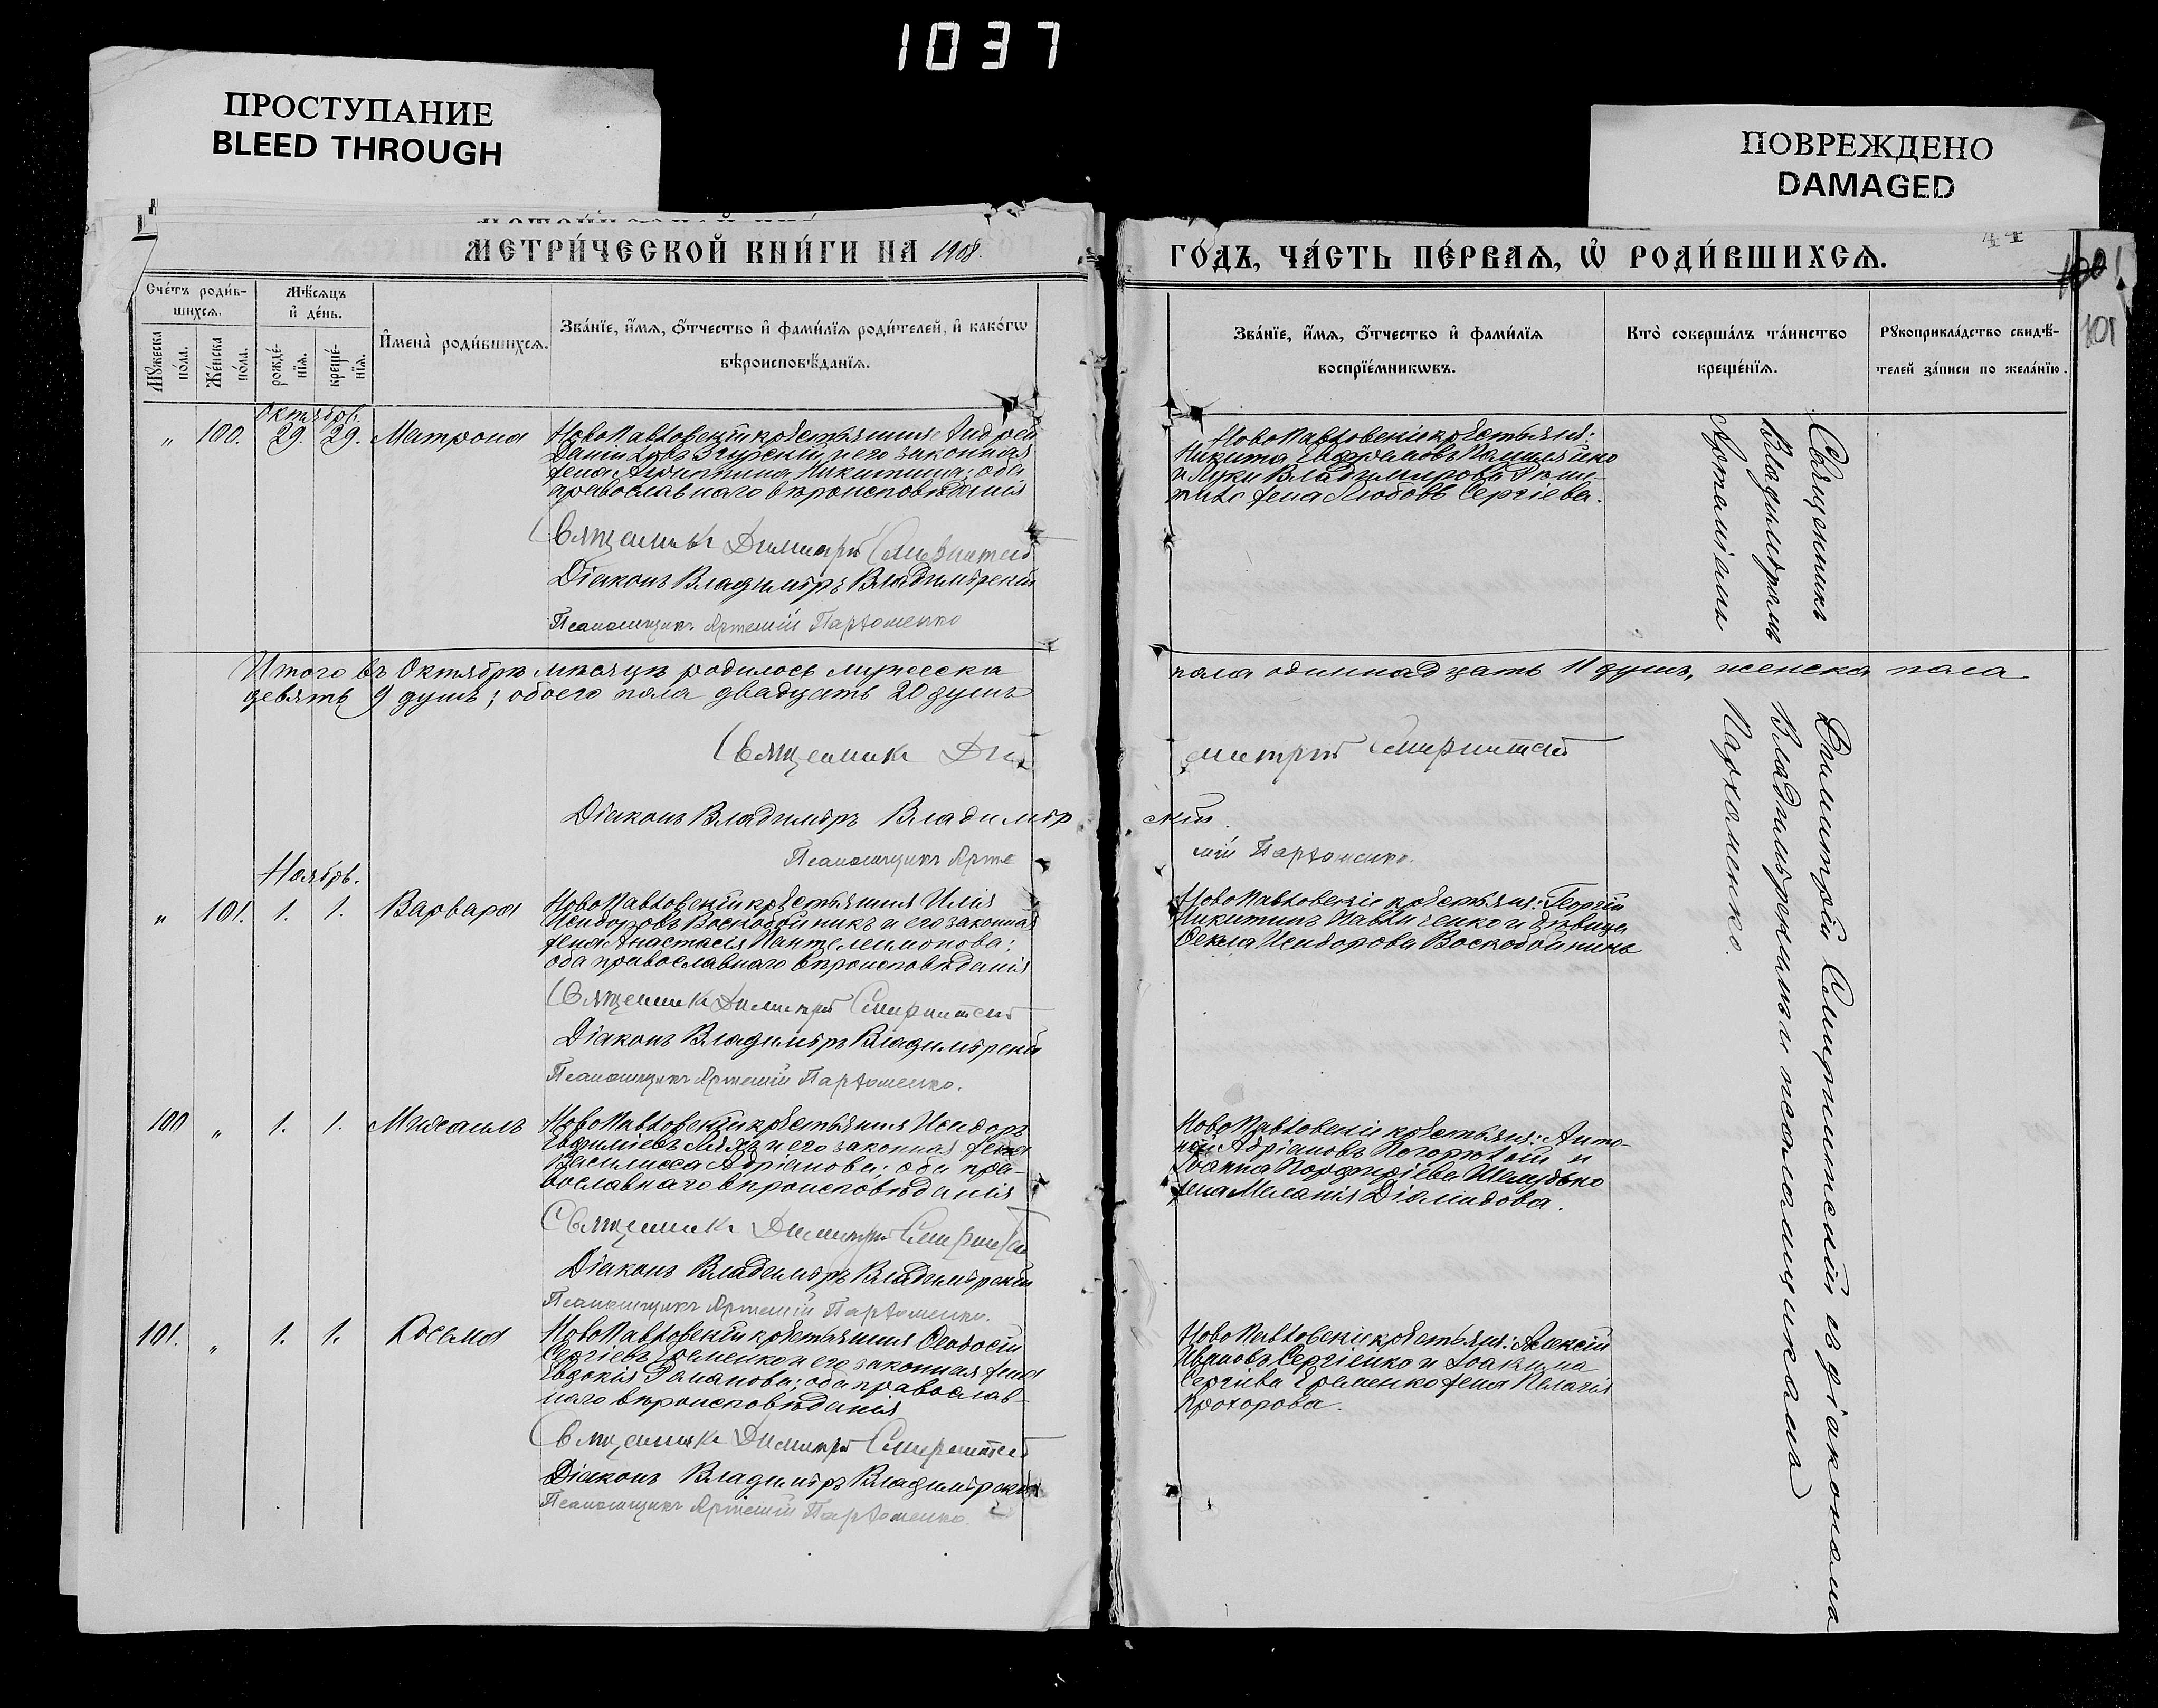 1037
ПРОСТУПАНИЕ
BLEED THROUGH
ПОВРЕЖДЕНО
DAMAGED
МЕТРИ́ЧЕСКОЙ КНИ́ГИ НА 1908.
ГО́ДЪ, ЧА́СТЬ ПЕ́РВАѦ, Ѡ РОДИ́ВШИХСѦ.
44
101
Сче́тъ роди́в-
шихсѧ.
Мꙋжеска по́ла.
Же́нска по́ла.
Мѣ́сѧцъ
и҆ де́нь.
рожде́-нїѧ.
креще́-нїѧ.
И҆мена̀ роди́вшихсѧ.
Зва́нїе, и҆́мѧ, ѻ҆́тчество и҆ фами́лїѧ роди́телей, и҆ како́гѡ
вѣроисповѣ́данїѧ.
Зва́нїе, и҆́мѧ, ѻ҆́тчество и҆ фами́лїѧ
воспрїе́мникѡвъ.
Кто̀ соверша́лъ та́инство
креще́нїѧ.
Рꙋкоприкла́дство свидѣ́-
телей за́писи по жела́нїю.
Октябрь.
„ 100. 29. 29. Матрона
НовоПавловскій крестьянинъ Андрей
Даниловъ Згурскій и его законная
жена Никитина; оба
православнаго вѣроисповѣданія
Священникъ Димитрій
Діаконъ Владиміръ Владимірскій
Псаломщикъ Артемій Пархоменко
НовоПавловскіе крестьяне:
Никита Ефремовъ
и Луки Владимирова
жена Любовь Сергіева.
Священникъ
Владиміромъ
Итого въ Октябрѣ мѣсяцѣ родилось мужеска
пола одиннадцать 11 душъ, женска пола
девять 9 душъ; обоего пола двадцать 20 душъ
Священникъ Ди
митрій
Діаконъ Владиміръ Владимір
скій.
Псаломщикъ Арте
мій Пархоменко.
Ноябрь.
„ 101. 1. 1. Варвара
НовоПавловскій крестьянинъ Илія
Исидоровъ Воскобойникъ и его законная
жена Анастасія Пантелеимонова;
оба православнаго вѣроисповѣданія
Священникъ Димитрій
Діаконъ Владиміръ Владимірскій
Псаломщикъ Артемій Пархоменко.
НовоПавловскіе крестьяне: Георгій
Никитинъ Павличенко и дѣвица
Ѳекла Исидорова Воскобойникъ
100 „ 1. 1. Михаилъ
НовоПавловскій крестьянинъ Исидоръ
Евфиміевъ и его законная жена
Василисса Адріанова; оба пра-
вославнаго вѣроисповѣданія
Священникъ Димитрій
Діаконъ Владиміръ Владимірскій
Псаломщикъ Артемій Пархоменко.
НовоПавловскіе крестьяне: Анто-
ній Адріановъ и
Іоанна Порфиріева
жена Меланія Діамидова.
101. „ 1. 1. Косьма
НовоПавловскій крестьянинъ Ѳеодосій
Сергіевъ Еременко и его законная жена
Евдокія Романова; оба православ-
наго вѣроисповѣданія
Священникъ Димитрій
Діаконъ Владиміръ Владимірскій
Псаломщикъ Артемій Пархоменко.
НовоПавловскіе крестьяне: Алексій
Ивановъ Сергіенко и Іоакима
Сергіева Еременко жена Пелагія
Прохорова.
Димитрій съ діакономъ
Владимірскимъ и псаломщикомъ
Пархоменко.